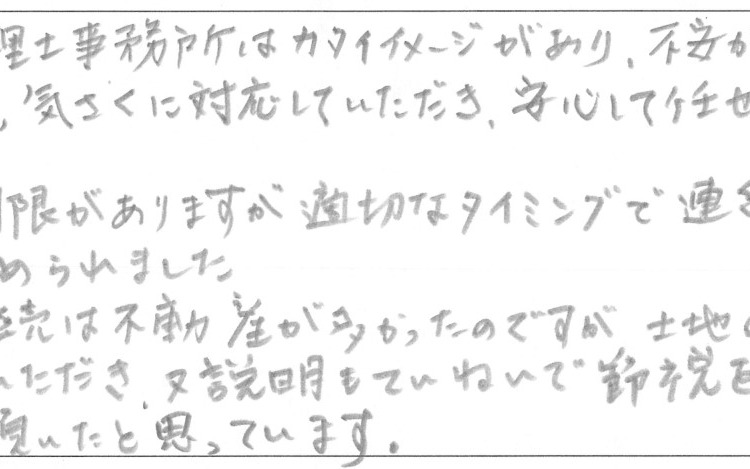 理士事務所はカタイイメージがあり、不安か
、気さくに対応していただき、安心して任せ
期限がありますが適切なタイミングで連絡
められました
続は不動産が多かったのですが土地の
いただき、又説明もていねいで
頂いたと思っています。